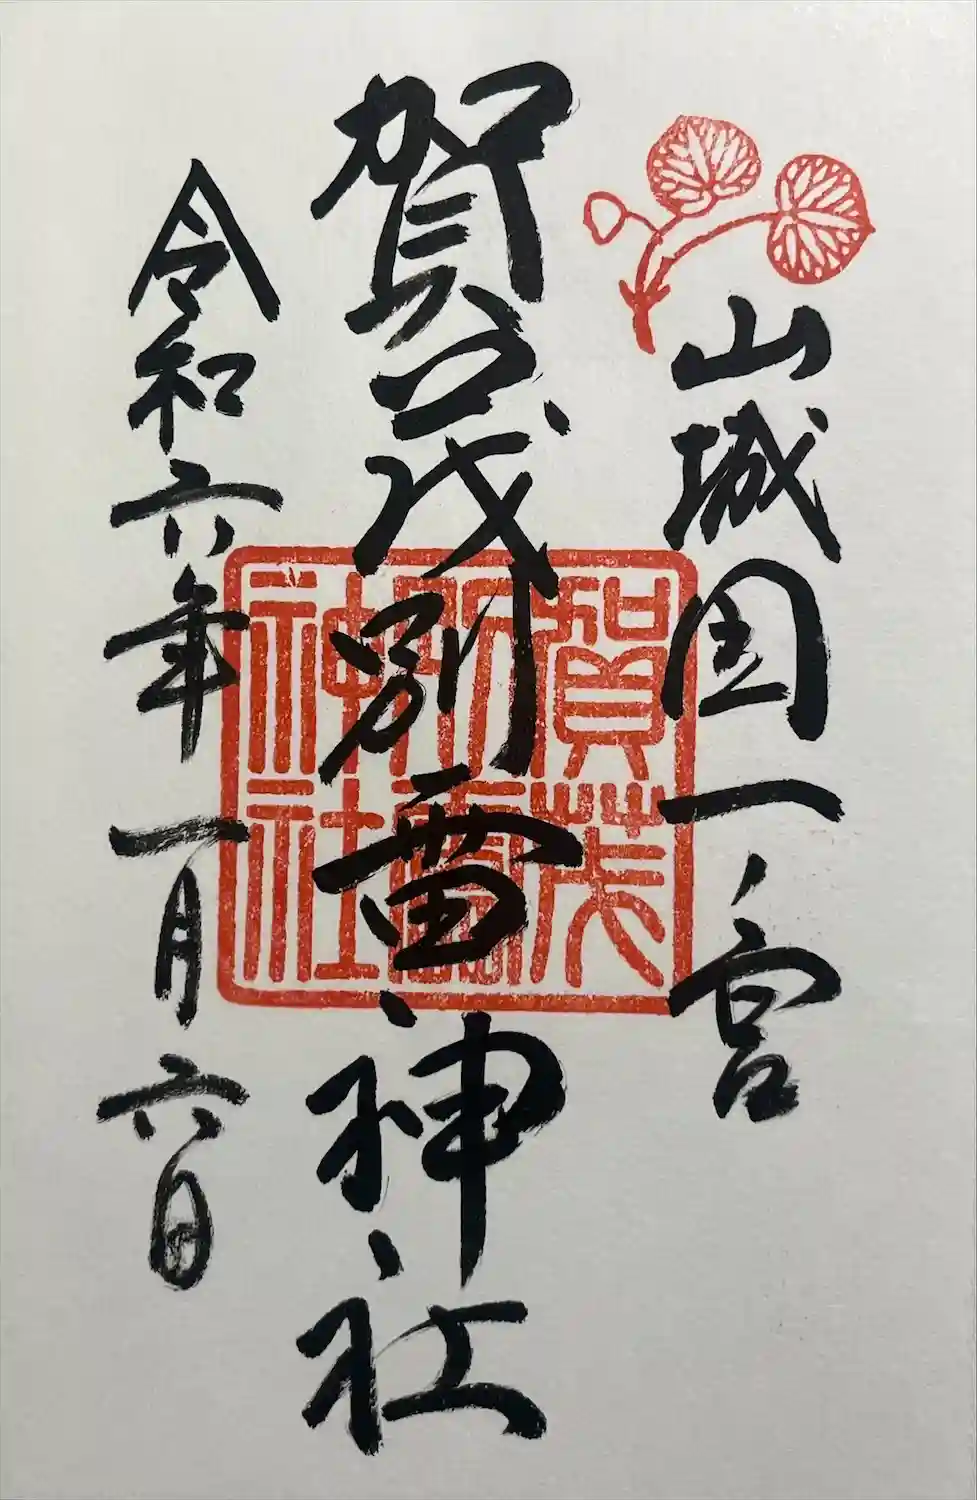 山城國一ノ宮
賀茂別雷神社
令和六年一月六日
賀茂
別雷
神社